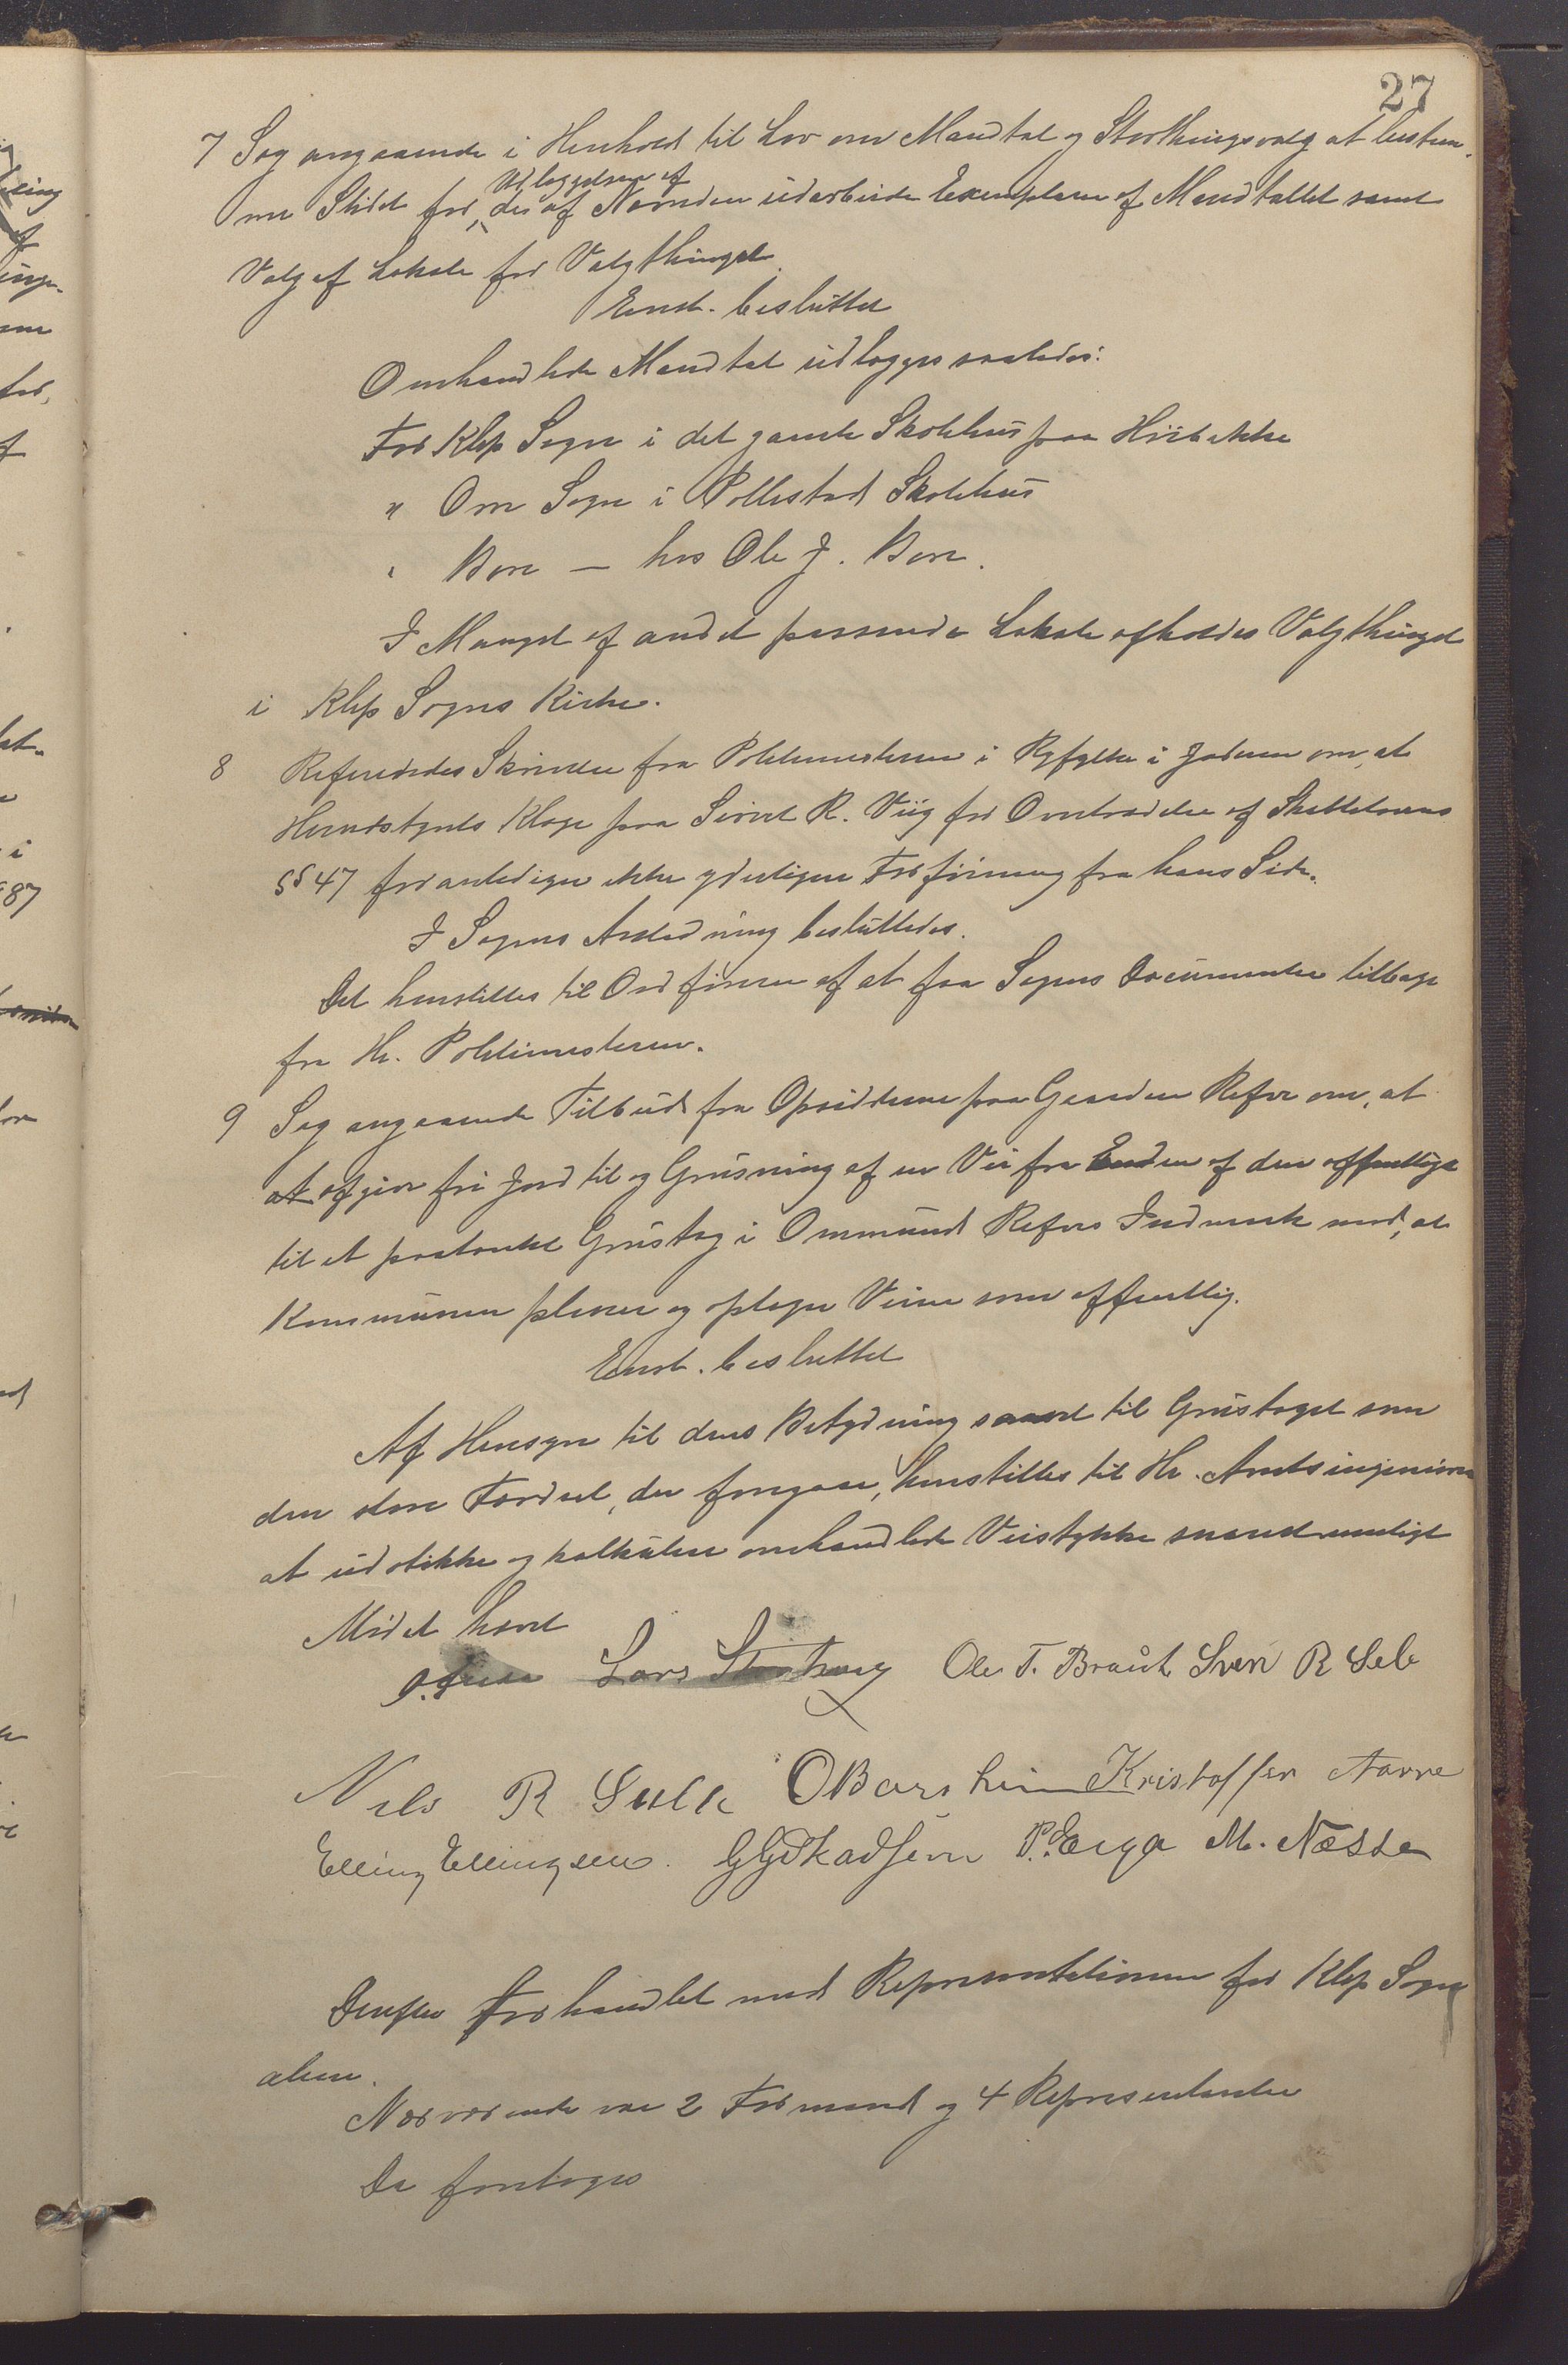 27
7 Sag angaaende i Henhold til Lov om Mandtal og Storthingsvalg at bestem-
me Stedet for Udlæggelsen af de af Nævnden udarbeide Exemplarer af Mandtallet samt
Valg af Lokale for Valgthinget.
Enst. besluttet
Omhandlede Mandtal udlægges saaledes:
For Klep Sogn i det gamle Skolehus paa
" Orre Sogn i Pollestad Skolehus
" Bore — hos Ole J. Bore.
I Mangel af andet passende Lokale afholdes Valgthinget
i Klep Sogns Kirke.
8 Refereredes Skrivelse fra Politimesteren i Ryfylke i Jæderen om, at
Herredstyrets Klage paa Sivert R. Viig for Overtrædelse af
§§ 47 foranlediger ikke yderligere Forføining fra hans Side.
I Sagens Anledning besluttedes.
Det henstilles til Ordføreren af at faa Sagens Documenter tilbage
fra Hr. Politimesteren.
9 Sag angaaende Tilbud fra Opsidderne paa Gaarden Refve om, at
at afgive fri Jord til og Grusning af en Vei fra Enden af den offentlige
til et paatænkt Grustag i Ommund Refves Indmark mod, at
Kommunen planer og optager Veien som offentlig.
Enst. besluttet
Af Hensyn til dens Betydning saavel til Grustaget som
den store Færdsel, der foregaar, henstilles til Hr. Amtsingeniøren
at udstikke og kalkulere omhandlede Veistykke snarest muligt
Mødet hævet
Lars Storhaug Ole T. Braut Sven R Sele
Nils R Sele O Borsheim Kristoffer Aarre
Elling Ellingsen. P. Erga M. Næsse
Derefter forhandlet med Representationen for Klep Sogn
alene.
Nærværende var 2 Formænd og 4 Representanter
Da foretoges